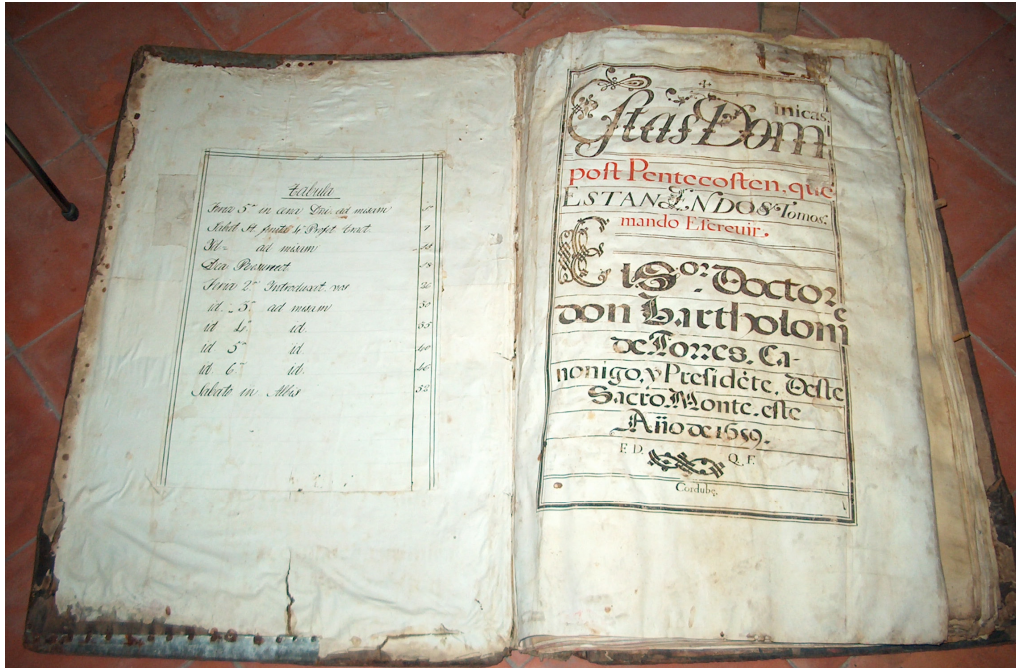 Tabula
Feria 5ª in cena Dni. ad misam
Sabat. St. post 4 Profet. tract. 7
Id. ad misam
Dca. Resurrect. 18
Feria 2ª Introduxit vos 26
id. 3ª ad misam 30
id 4ª id. 35
id 5ª id. 40
id 6ª id. 46
Sabato in Albis 52
Estas Dominicas.
post Pentecosten, que
ESTAN EN DOS Tomos.
mando Escrevir.
El Sor. Doctor
don Bartholome
de Torres, Ca-
nonigo, y Presidēte, Deste
Sacro Monte. este
Año de 1689.
E. D. Q. F.
Cordubę.